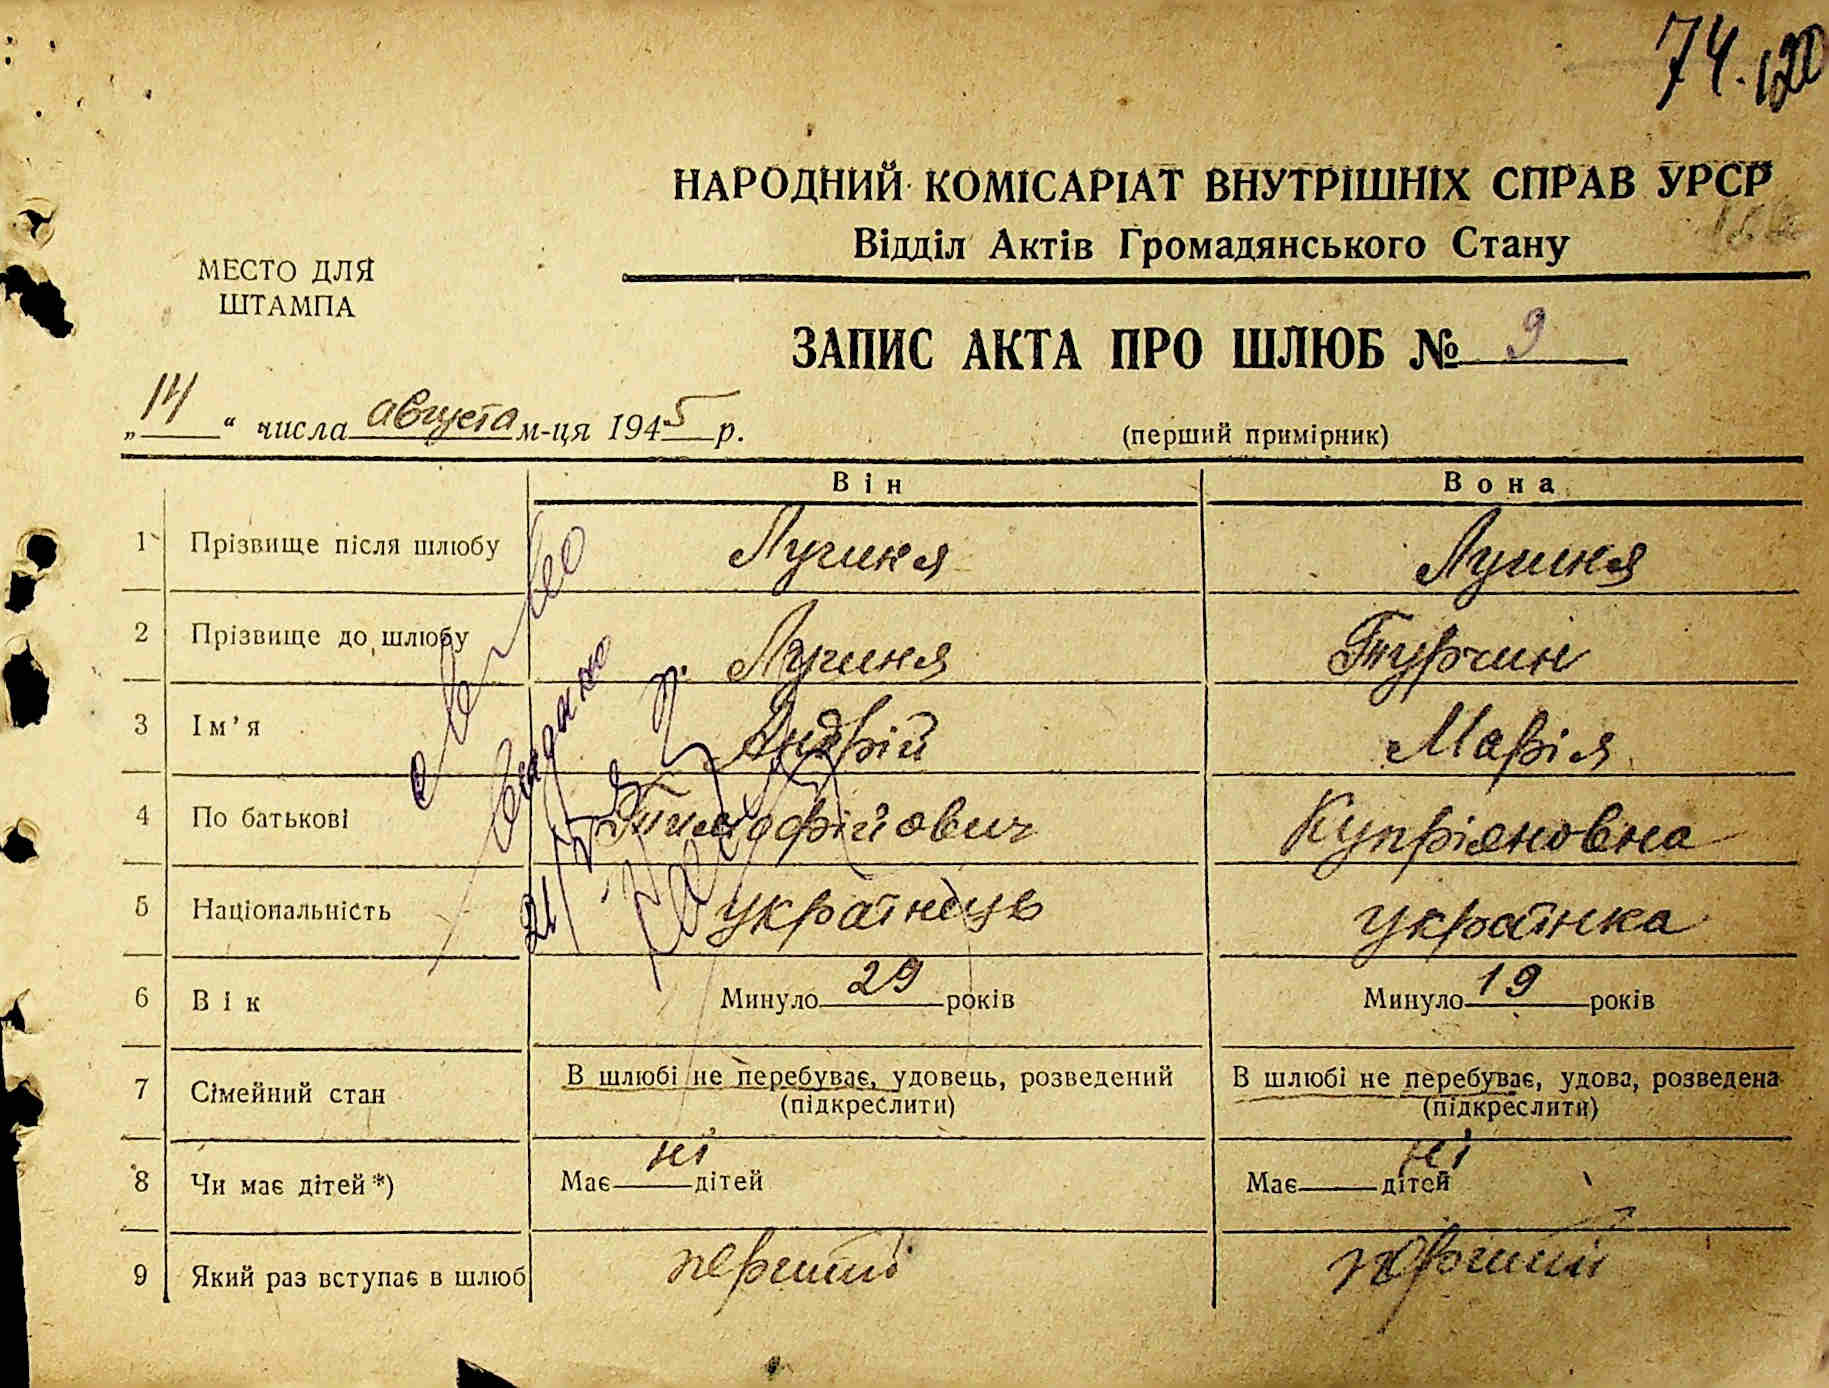 74. 120
НАРОДНИЙ КОМІСАРІАТ ВНУТРІШНІХ СПРАВ УРСР
Відділ Актів Громадянського Стану
МЕСТО ДЛЯ
ШТАМПА
ЗАПИС АКТА ПРО ШЛЮБ № 9
„14“ числа августа м-ця 1945 р.
(перший примірник)
Він Вона
1 Прізвище після шлюбу Лучиня Лучиня
2 Прізвище до шлюбу Лучиня Турчин
3 Ім'я Андрій Марія
4 По батькові Тимофійович Купріяновна
5 Національність українець українка
6 Вік Минуло 29 років Минуло 19 років
7 Сімейний стан В шлюбі не перебуває, удовець, розведений В шлюбі не перебуває, удова, розведена
(підкреслити) (підкреслити)
8 Чи має дітей*) Має ні дітей Має ні дітей
9 Який раз вступає в шлюб перший перший